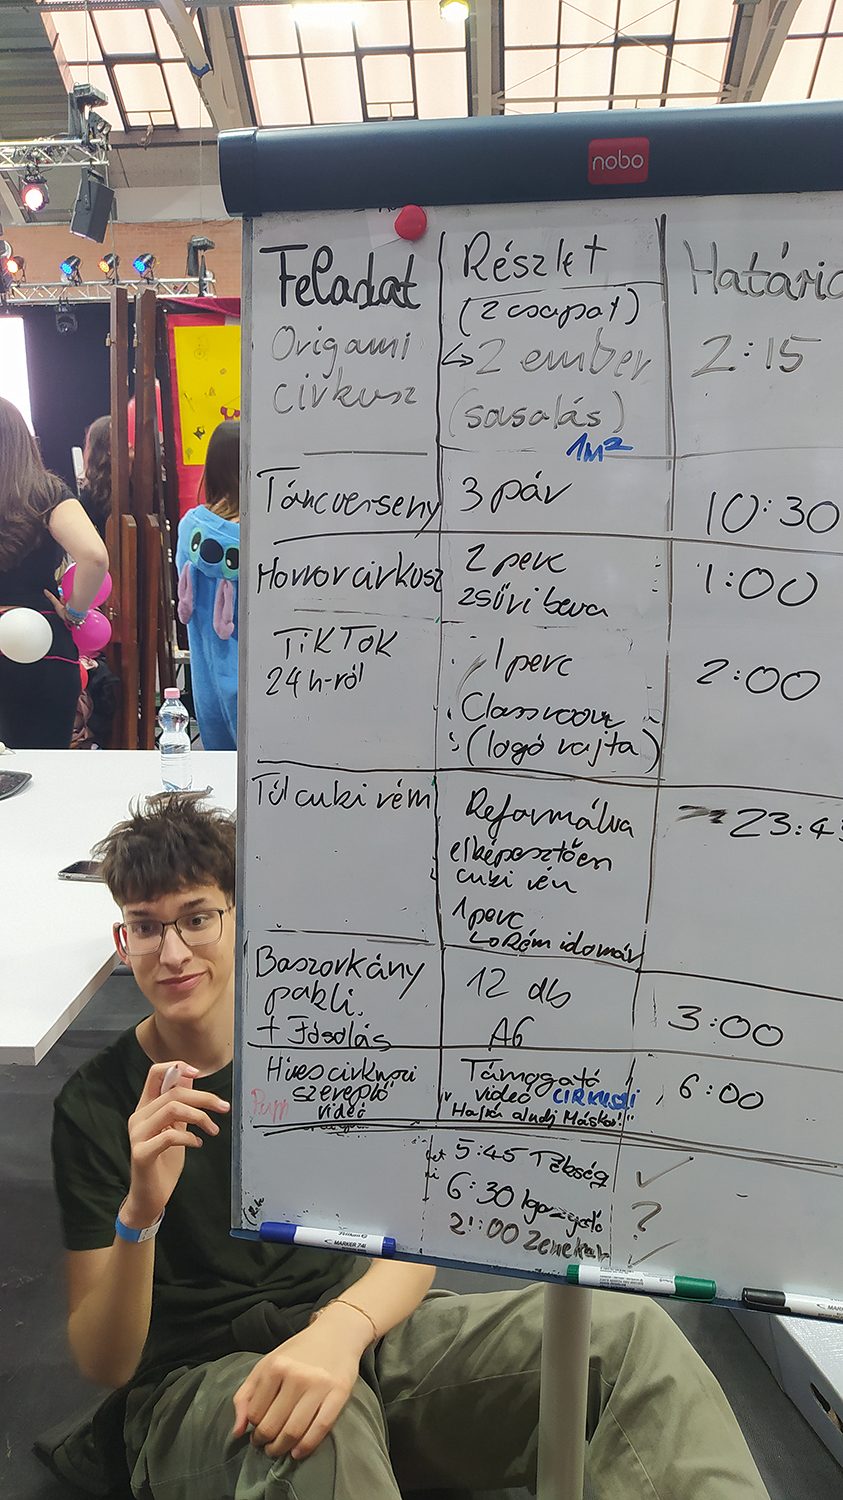 nobo
Feladat
Részlet
Határid
Origami
cirkusz
(2 csapat)
↳2 ember
(sasolás)
1m²
2:15
Táncverseny
3 pár
10:30
Horrorcirkusz
2 perc
zsűri
1:00
TikTok
24h-ról
1 perc
Classroom
(logó rajta)
2:00
Túl cuki rém
Reformálva
elképesztően
cuki
1 perc
↳ Rém idomár
23:43
Boszorkány
pakli
+ Jóslás
12 db
A6
3:00
Híres cirkuszi
szereplő
videó
Támogató
videó CIRKUSZI
aludj
6:00
5:45
6:30 Igazgató ?
21:00 Zenekar ✓
MARKER 741